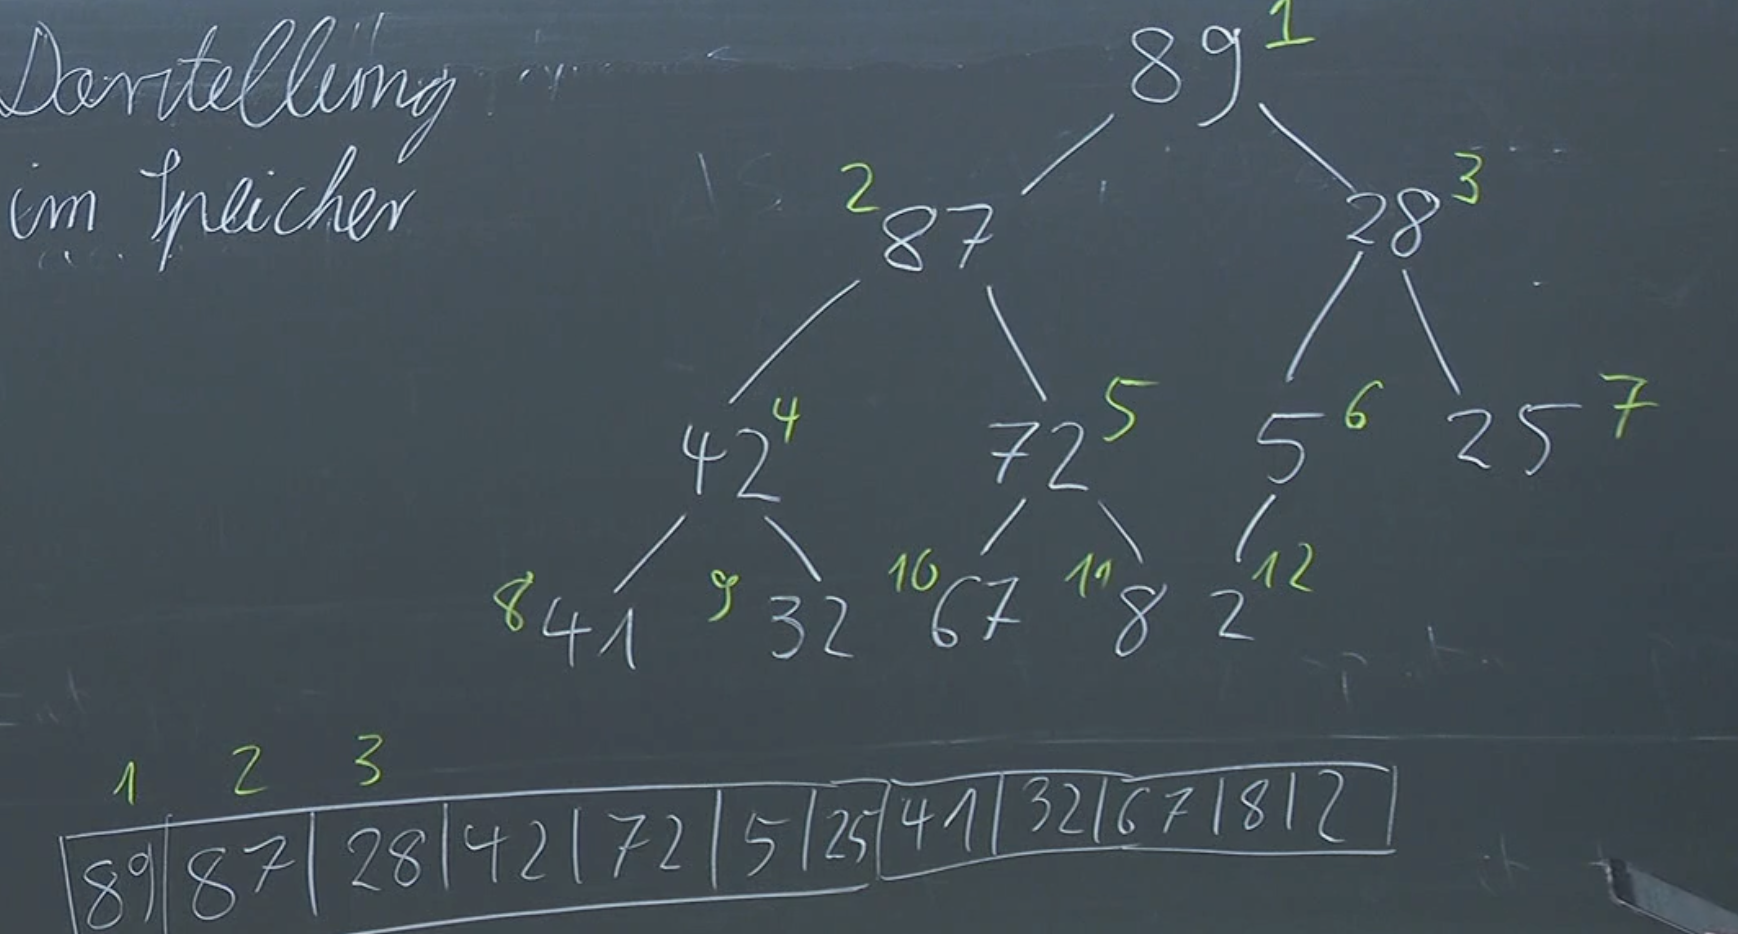 Darstellung
im Speicher
89 1
2 87
28 3
42 4
72 5
5 6
25 7
8 41
9 32
10 67
11 8
2 12
1 2 3
89 87 28 42 72 5 25 41 32 67 8 2